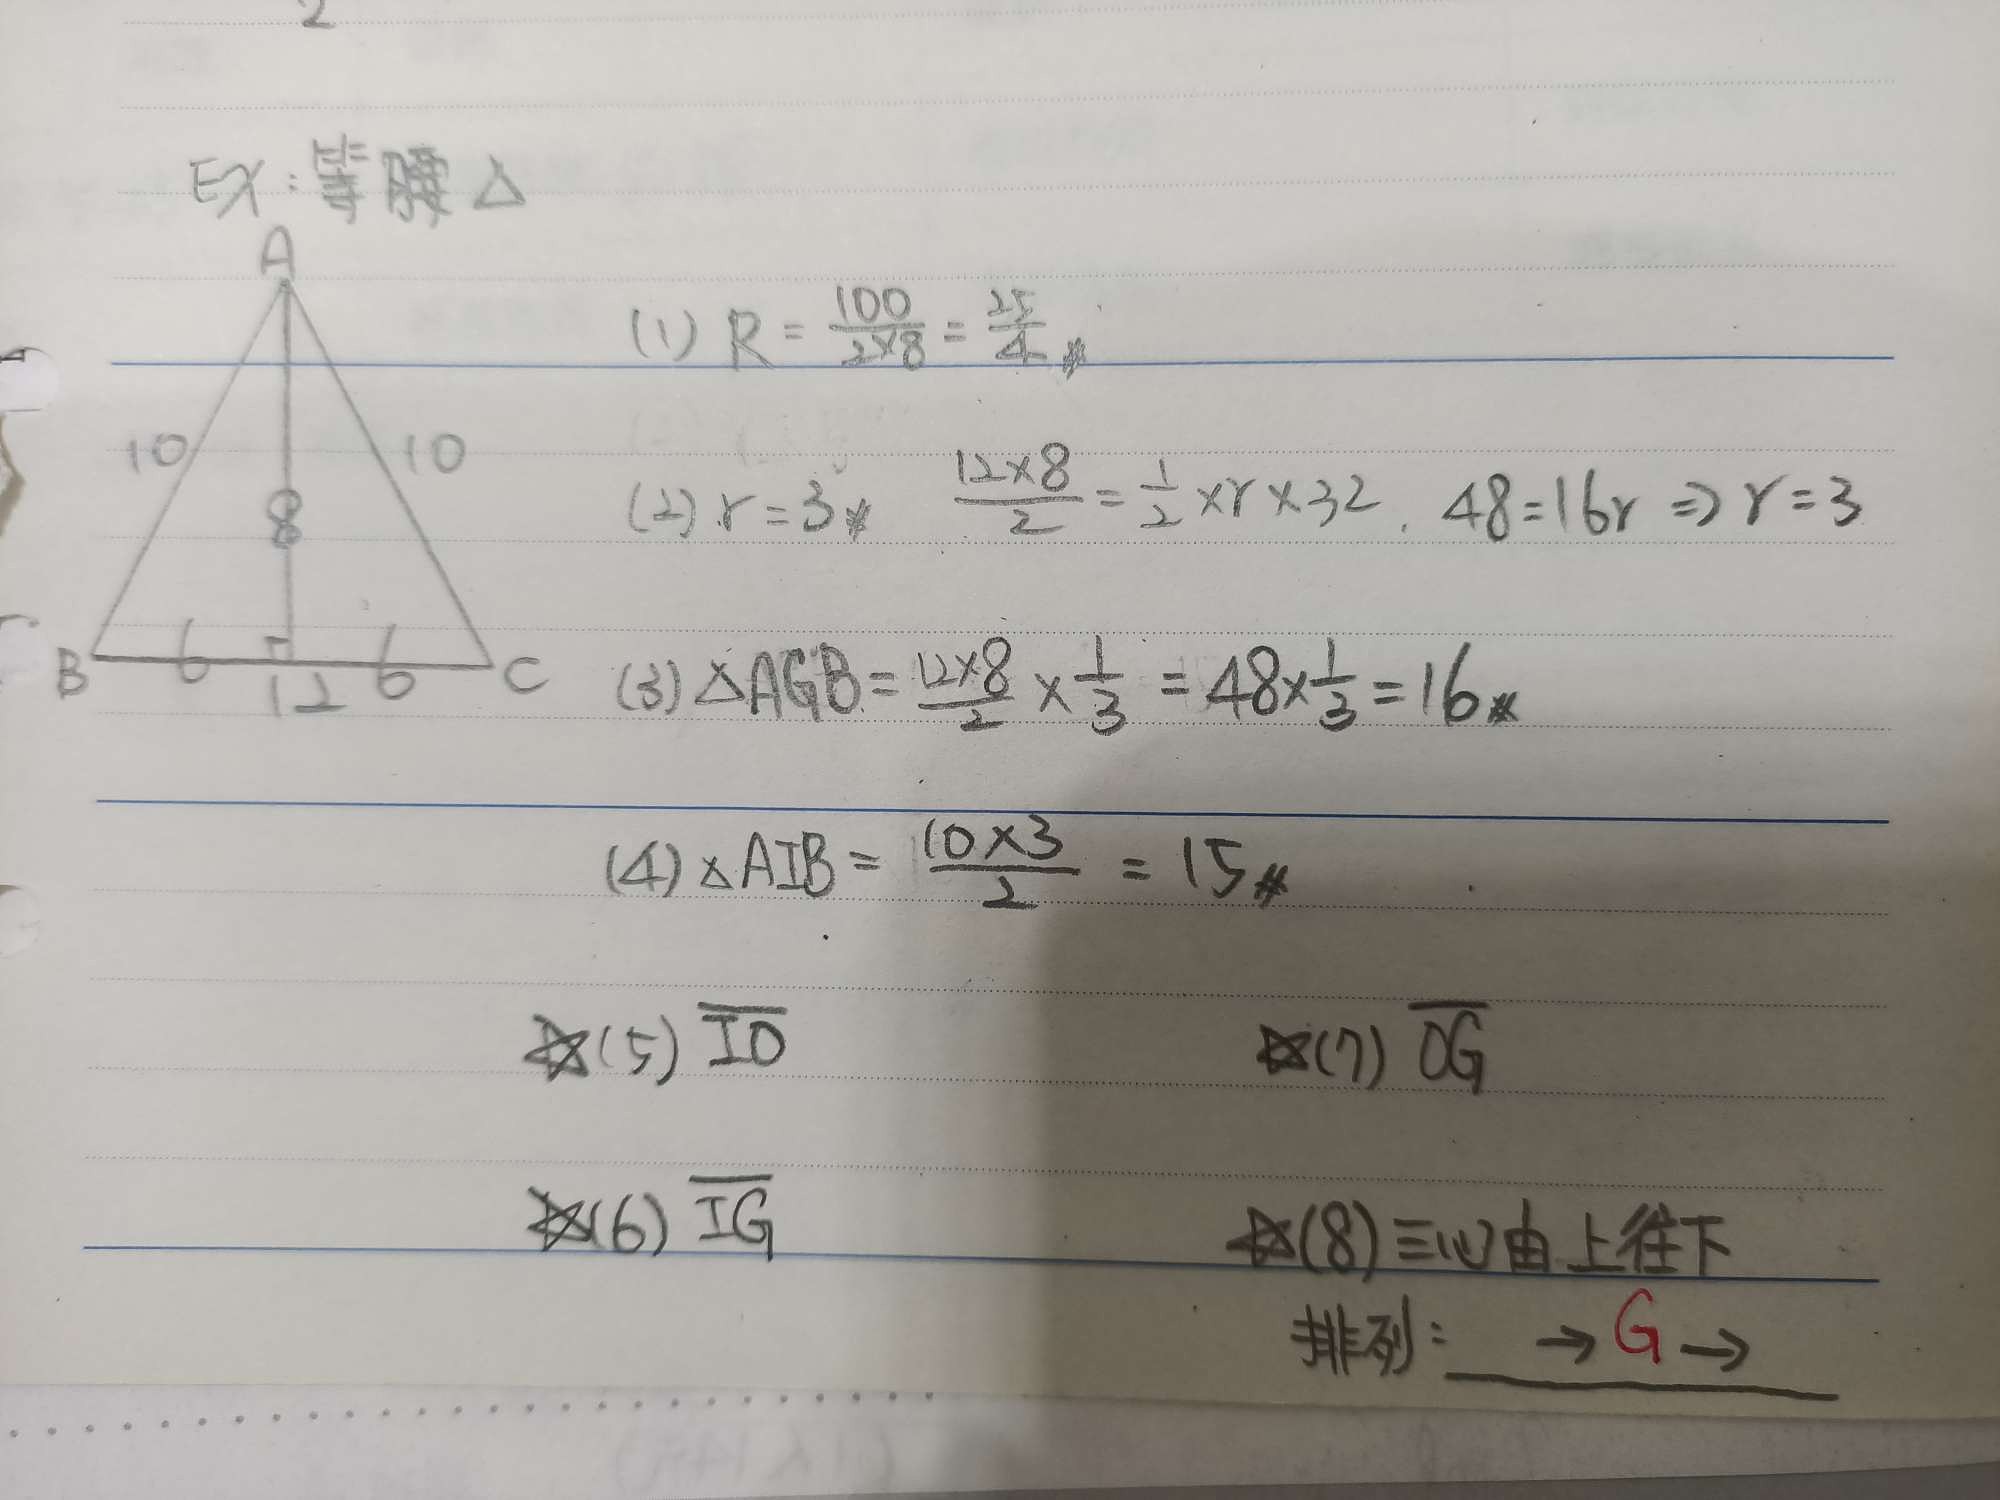 2
EX：等腰△
A
10
10
8
B
6
6
C
12
(1) R = 100/2×8 = 25/4 #
(2) r = 3 # 12×8/2 = 1/2 × r × 32 . 48 = 16r ⇒ r = 3
(3) △AGB = 12×8/2 × 1/3 = 48 × 1/3 = 16 #
(4) △AIB = 10×3/2 = 15 #
☆(5) I̅O̅
☆(7) O̅G̅
☆(6) I̅G̅
☆(8) 三心由上往下
排列：　→ G →